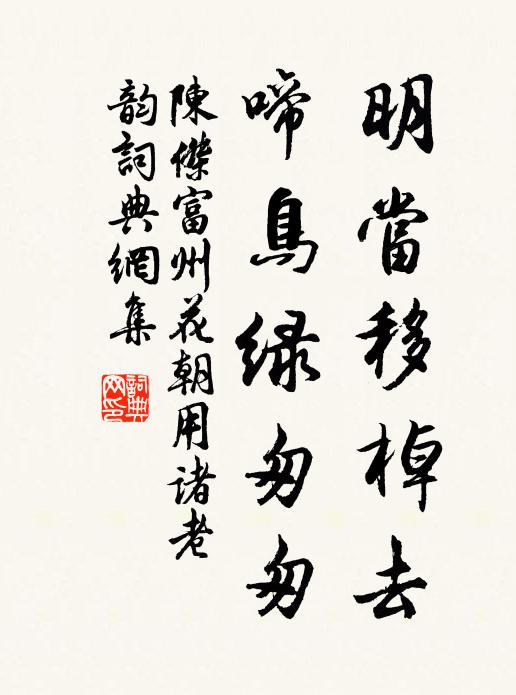 明當移棹去
啼鳥緑匆匆
陳傑富州花朝用诸老
韵詞典網集
詞典
网印